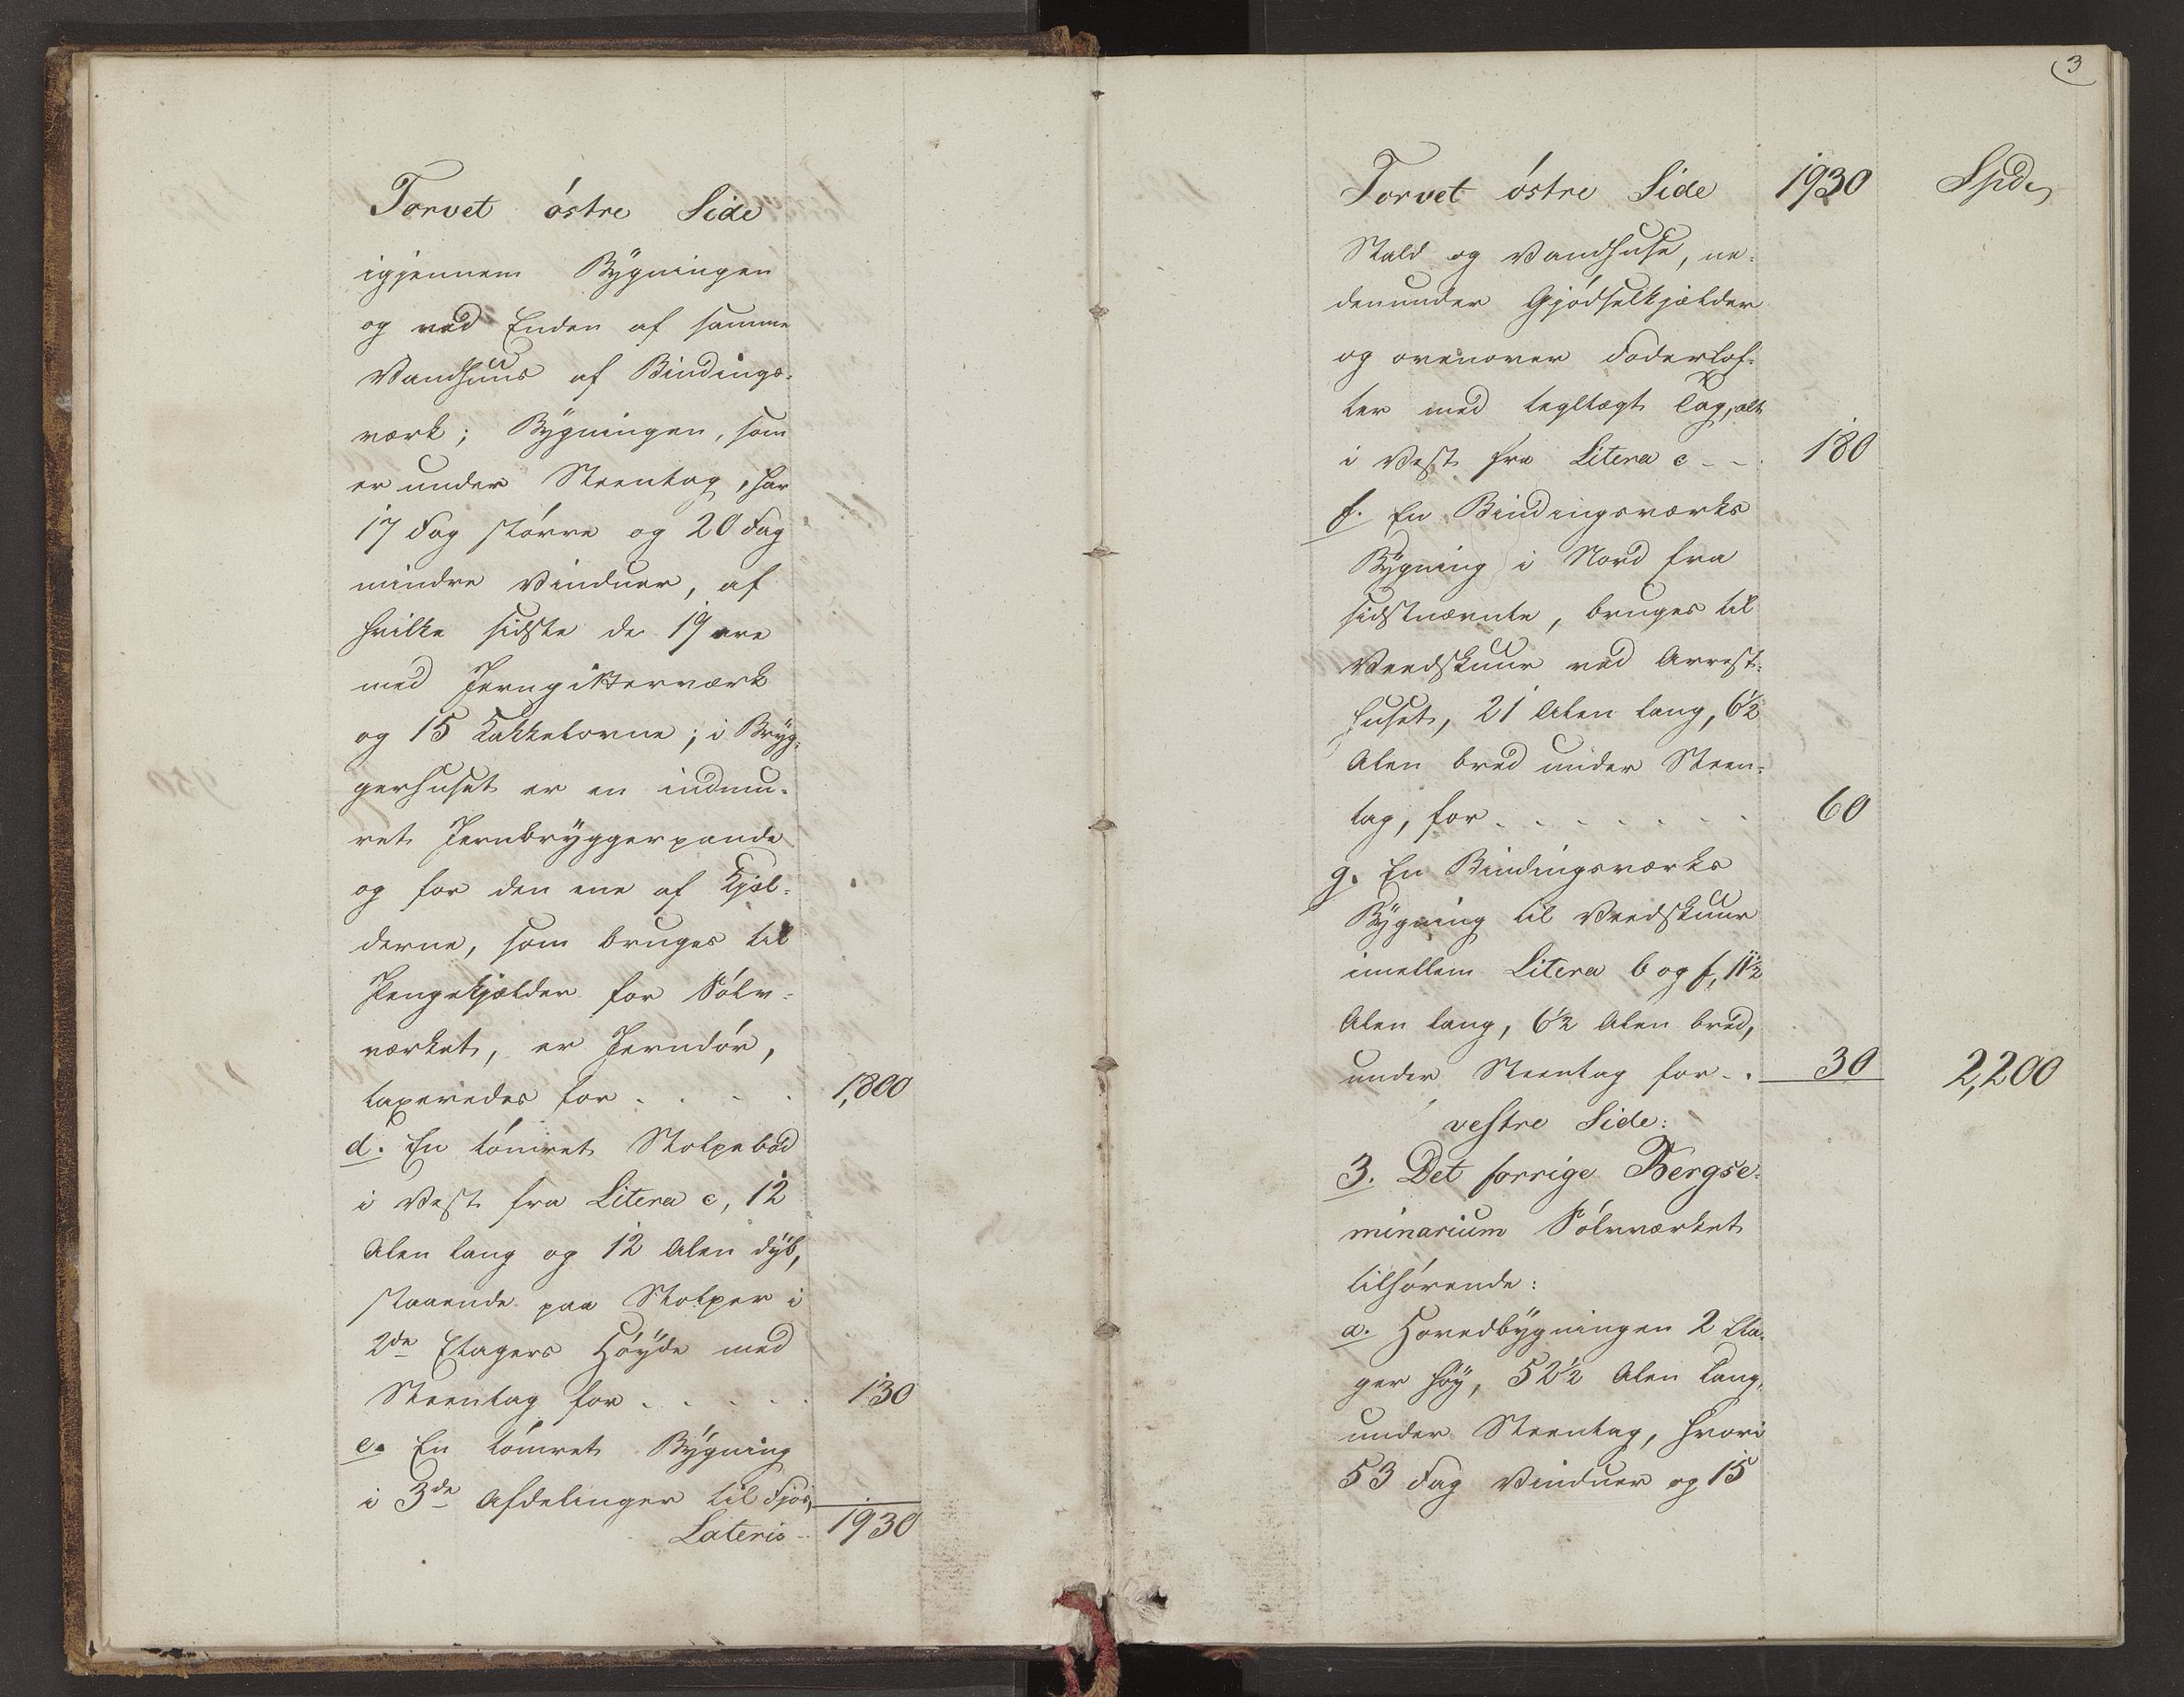 Torvet östre Side
igjennem Bÿgningen
og ved Enden af samme
Vandhuus af Bindings-
værk; Bÿgningen, som
er under Steentag, har
17 Fag större og 20 Fag
mindre Vinduer, af
hvilke sidste de 19 ere
med Jerngitterværk
og 15 Kakkelovne; i Brÿg-
gerhuset er en indmu-
ret Jernbrÿggerpande
og for den ene af Kjel-
derne, som bruges til
Pengekjelder for Sölv-
værket, er Jerndör,
taxeredes for . . . . 1,800
d. En tömret Stolpebod
i Vest fra Litera c, 12
Alen lang og 12 Alen dÿb,
staaende paa Stolper i
2de Etagers Höÿde med
Steentag for . . . . . 130
e. En tömret Bÿgning
i 3de Afdelinger til Fjös,
Lateris .. 1930
3
Torvet östre Side 1930 Spd.
Stald og Vandhuse, ne-
denunder Gjödselkjelder
og ovenover Foderlof-
ter med teglægt Tag, alt
i Vest fra Litera c - - . 180
f. En Bindingsværks
Bÿgning i Nord fra
sidstnævnte, bruges til
Veedskuur ved Arrest-
huset, 21 Alen lang, 6½
Alen bred under Steen-
tag, for . . . . . . . 60
g. En Bindingsværks
Bÿgning til Veedskuur
imellem Litera b og f, 11½
Alen lang, 6½ Alen bred,
under Steentag for - . 30 2,200
vestre Side:
3. Det forrige Bergse-
minarium Sölvværket
tilhörende:
a. Hovedbÿgningen 2 Eta-
ger höÿ, 52½ Alen lang,
under Steentag, hvori
53 Fag Vinduer og 15